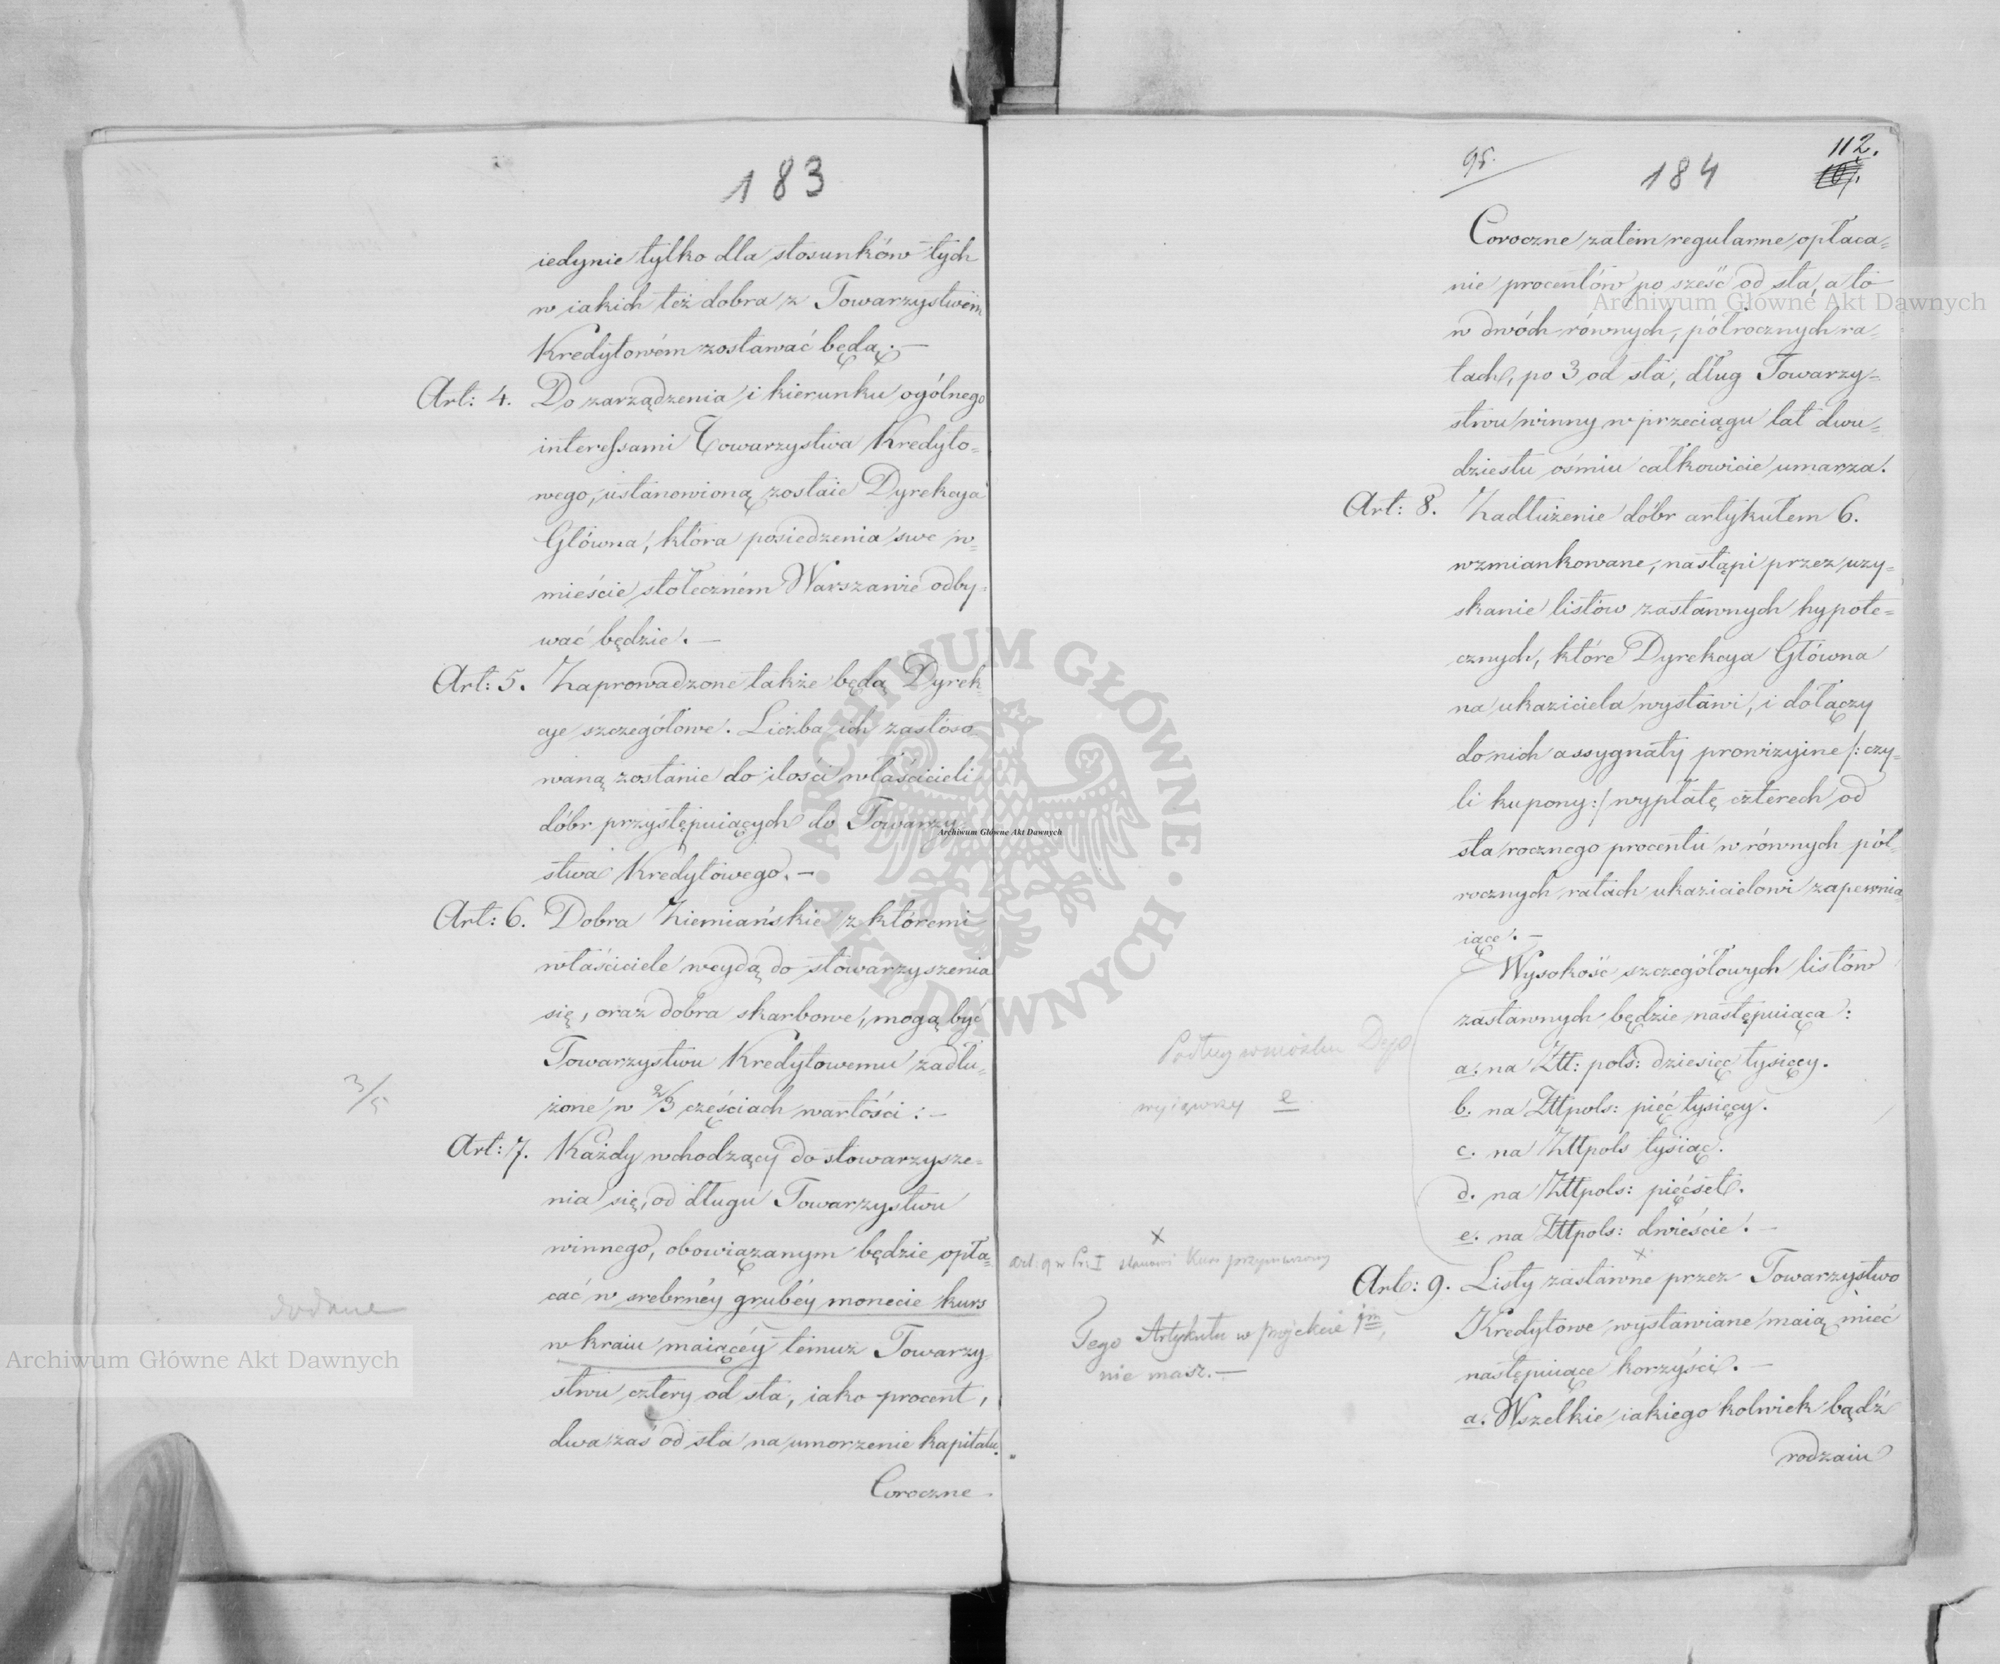 183
iedynie tylko dla stosunków tych
w iakich też dobra z Towarzystwem
Kredytowém zostawać będą. —
Art: 4. Do zarządzenia i kierunku ogólnego
interessami Towarzystwa Kredyto=
wego, ustanowioną zostaie Dyrekcya
Główna, która posiedzenia swe w=
mieście stołeczném Warszawie odby=
wać będzie. —
Art: 5. Zaprowadzone także będą Dyrek=
cye szczegółowe. Liczba ich zastóso
waną zostanie do ilosci właścicieli
dóbr przystępuiących do Towarzy
stwa Kredytowego. —
Art: 6. Dobra Ziemiańskie z któremi
właściciele weydą do stowarzyszenia
się, oraz dobra skarbowe, mogą być
Towarzystwu Kredytowemu zadłu=
żone w 2/3 częściach wartości: —
3/5
Art: 7. Każdy wchodzący do stowarzysze=
nia się, od długu Towarzystwu
winnego, obowiązanym będzie opła=
cać w srebrnéy grubéy monecie kurs
dodane
w kraiu maiącéy temuz Towarzy=
stwu cztery od sta, iako procent,
dwa zaś od sta na umorzenie kapitału.
Coroczne
95.
184
112.
Coroczne zatém regularne opłaca=
nie procentów po sześć od sta, a to
w dwóch równych, półrocznych ra=
tach, po 3 od sta, dług Towarzy=
stwu winny w przeciągu lat dwu=
dziestu ośmiu całkowicie umarza.
Art: 8. Zadłużenie dóbr artykułem 6.
wzmiankowane, nastąpi przez uzy=
skanie listów zastawnych hypote=
cznych, które Dyrekcya Główna
na ukaziciela wystawi, i dołączy
do nich assygnaty prowizyine /: czy=
li kupony :/ wypłatę czterech od
sta rocznego procentu w równych pół=
rocznych ratach ukazicielowi zapewnia
iące. —
Wysokość szczegółowych listów
zastawnych będzie następuiąca:
Podług wniosku Dep.
a. na Złt: pols: dziesięć tysięcy.
wyiąwszy e
b. na Złtpols: pięć tysięcy.
c. na Złtpols tysiąc.
d. na Złtpols: pięćset.
e. na Złtpols: dwieście. —
x
Art: 9 w Pr: I stanowi Kurs przymusowy
x
Art: 9. Listy zastawne przez Towarzystwo
Kredytowe wystawiane maią mieć
Tego Artykułu w projekcie 1m
nie masz. —
następuiące korzyści. —
a. Wszelkie iakiego kolwiek bądź
rodzaiu
Archiwum Główne Akt Dawnych
Archiwum Główne Akt Dawnych
Archiwum Główne Akt Dawnych
ARCHIWUM GŁÓWNE AKT DAWNYCH